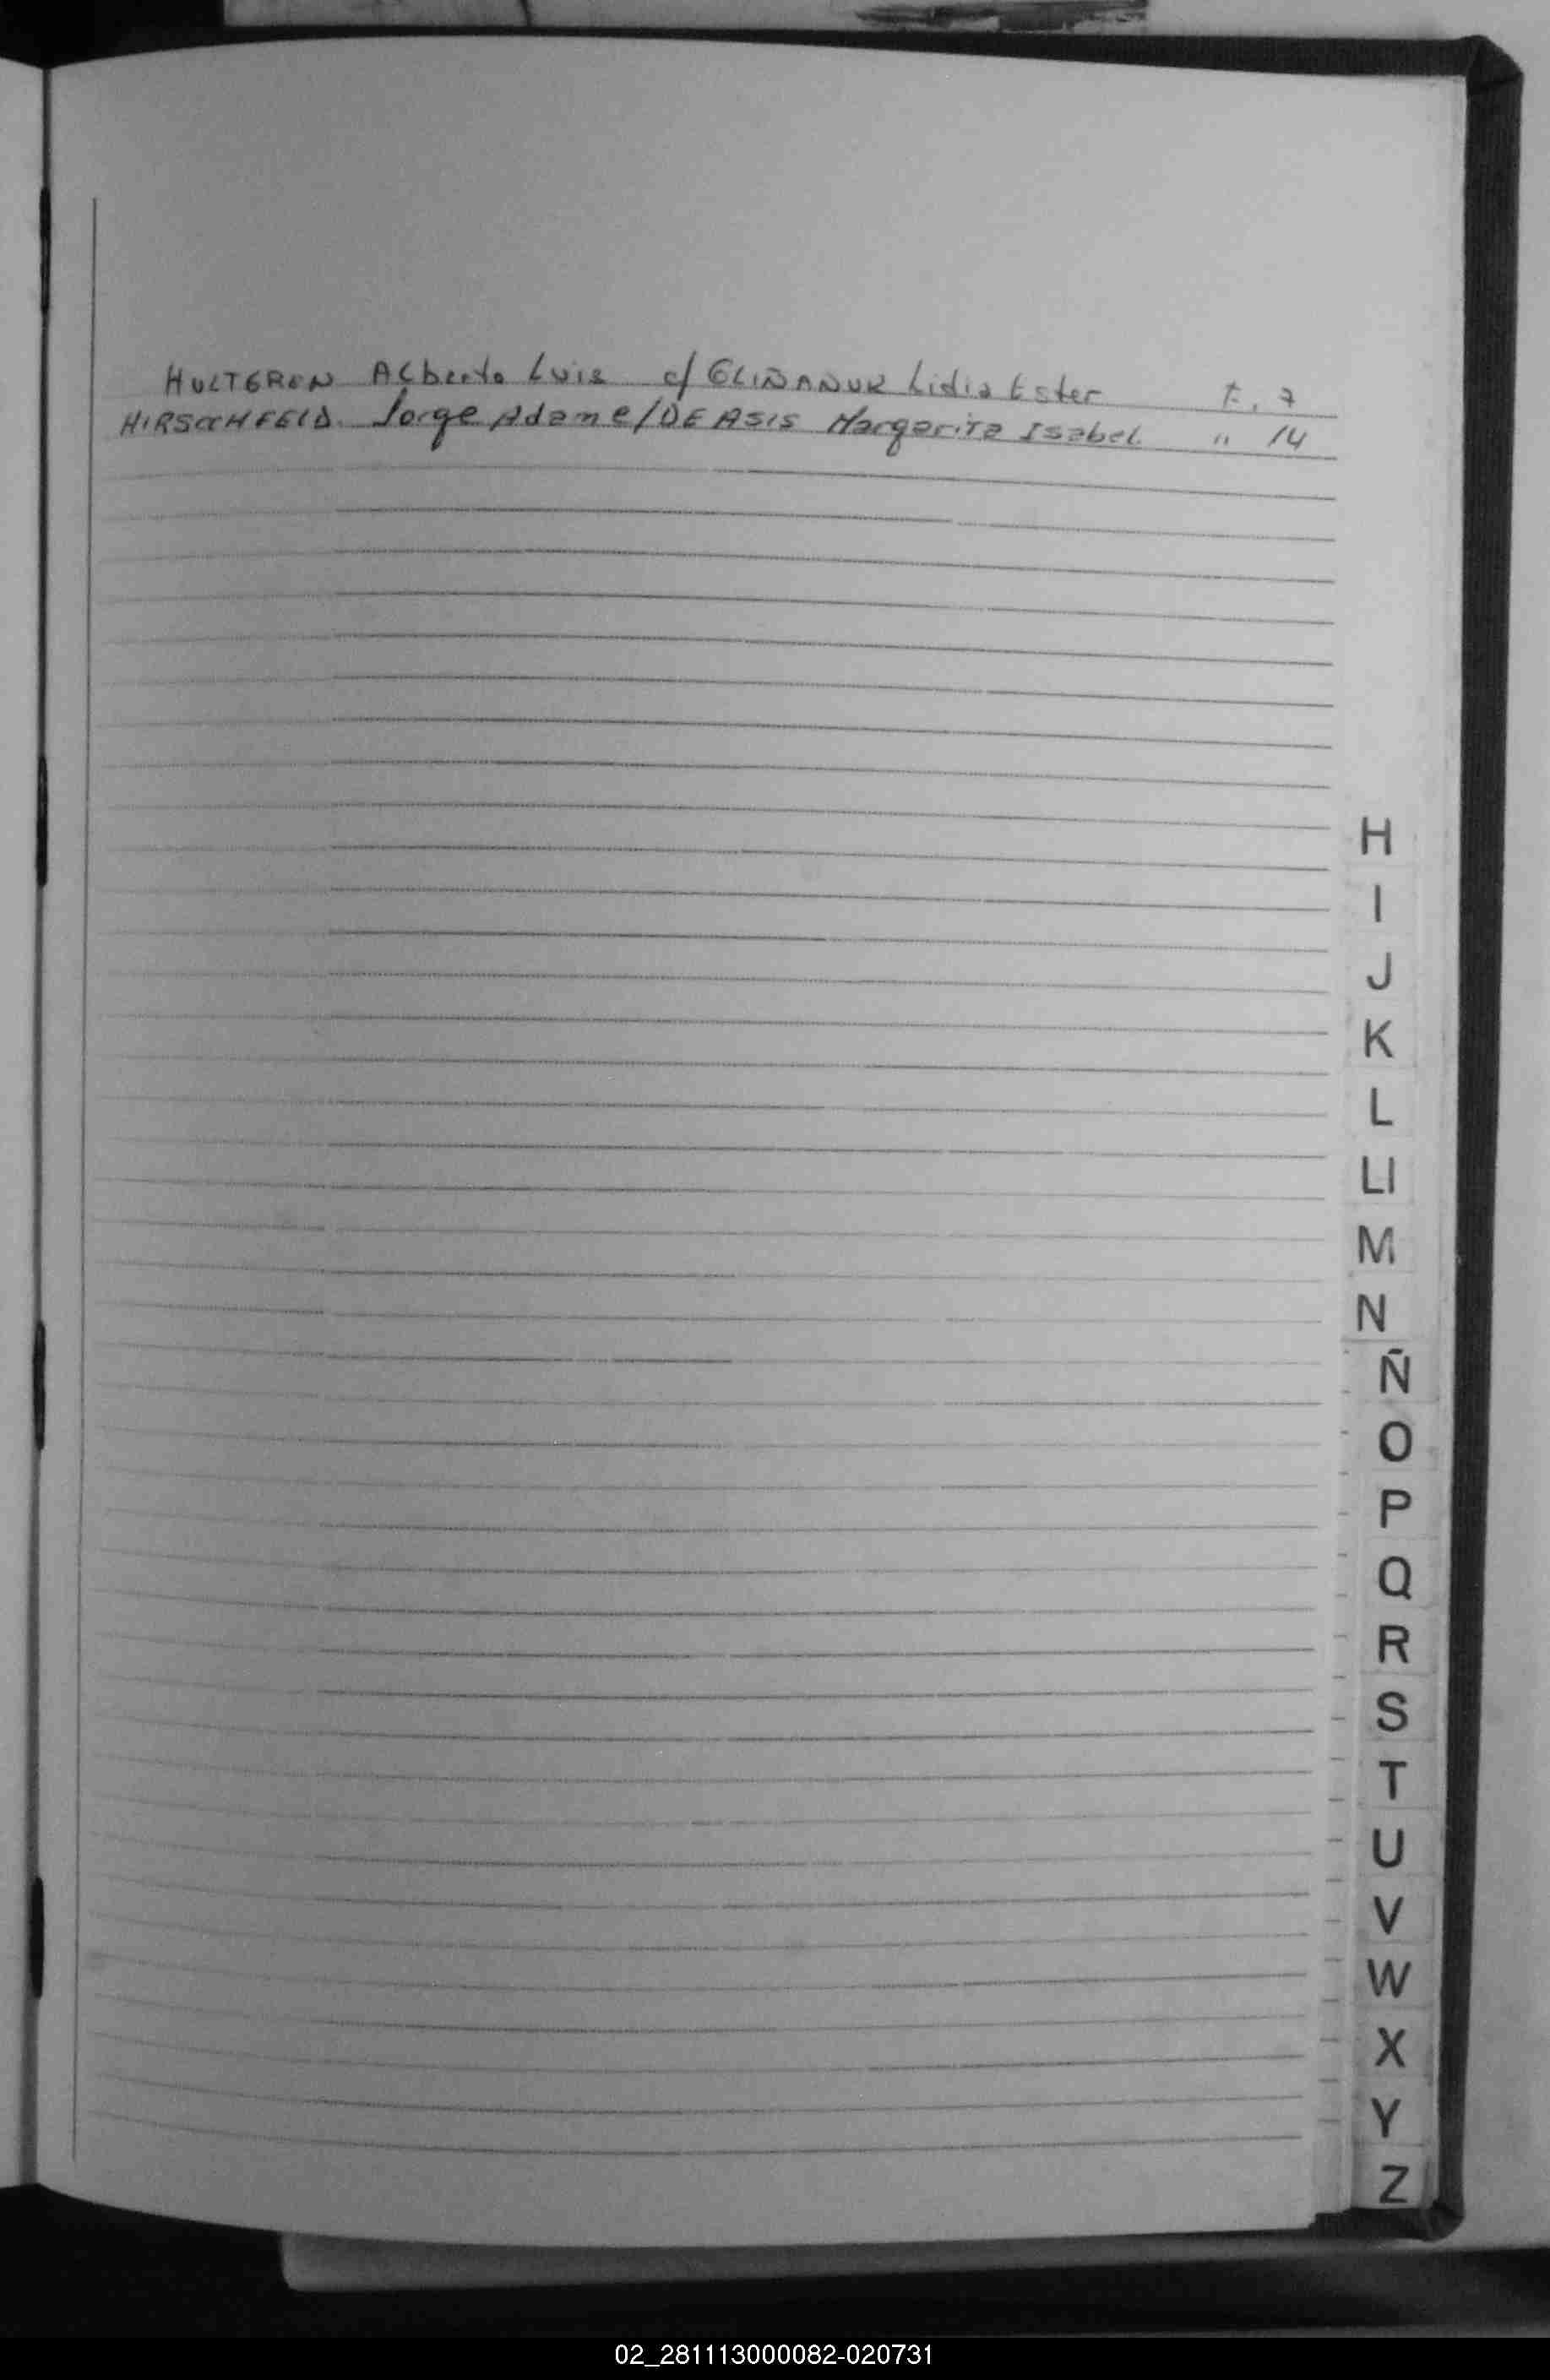 HULTGREN Alberto Luis c/ GLIÑANUK Lidia Ester F. 7
HIRSCCHFELD. Jorge Adam c/ DE ASIS Margarita Isabel " 14
H
I
J
K
L
Ll
M
N
Ñ
O
P
Q
R
S
T
U
V
W
X
Y
Z
02_281113000082-020731